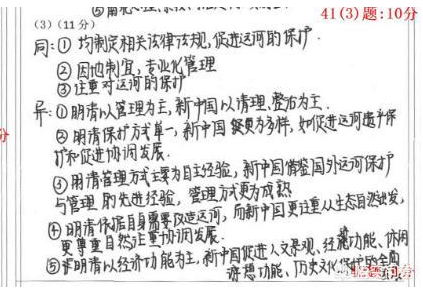 (3)(11分)
41(3)题:10分
同:① 均制定相关法律法规,促进运河的保护.
② 因地制宜,专业化管理
③ 注重对运河的保护
异:① 明清以管理为主,新中国以清理、整治为主.
② 明清保护方式单一,新中国更为多样,如促进运河遗产保
护和促进协调发展.
③ 明清管理方式主要为自主经验,新中国借鉴国外运河保护
与管理的先进经验,管理方式更为成熟
④ 明清依据自身需要改造运河,而新中国更注重从生态自然出发,
更尊重自然注重协调发展.
⑤ 明清以经济功能为主,新中国促进人文景观、经济功能、休闲
功能、历史文化保护的全面